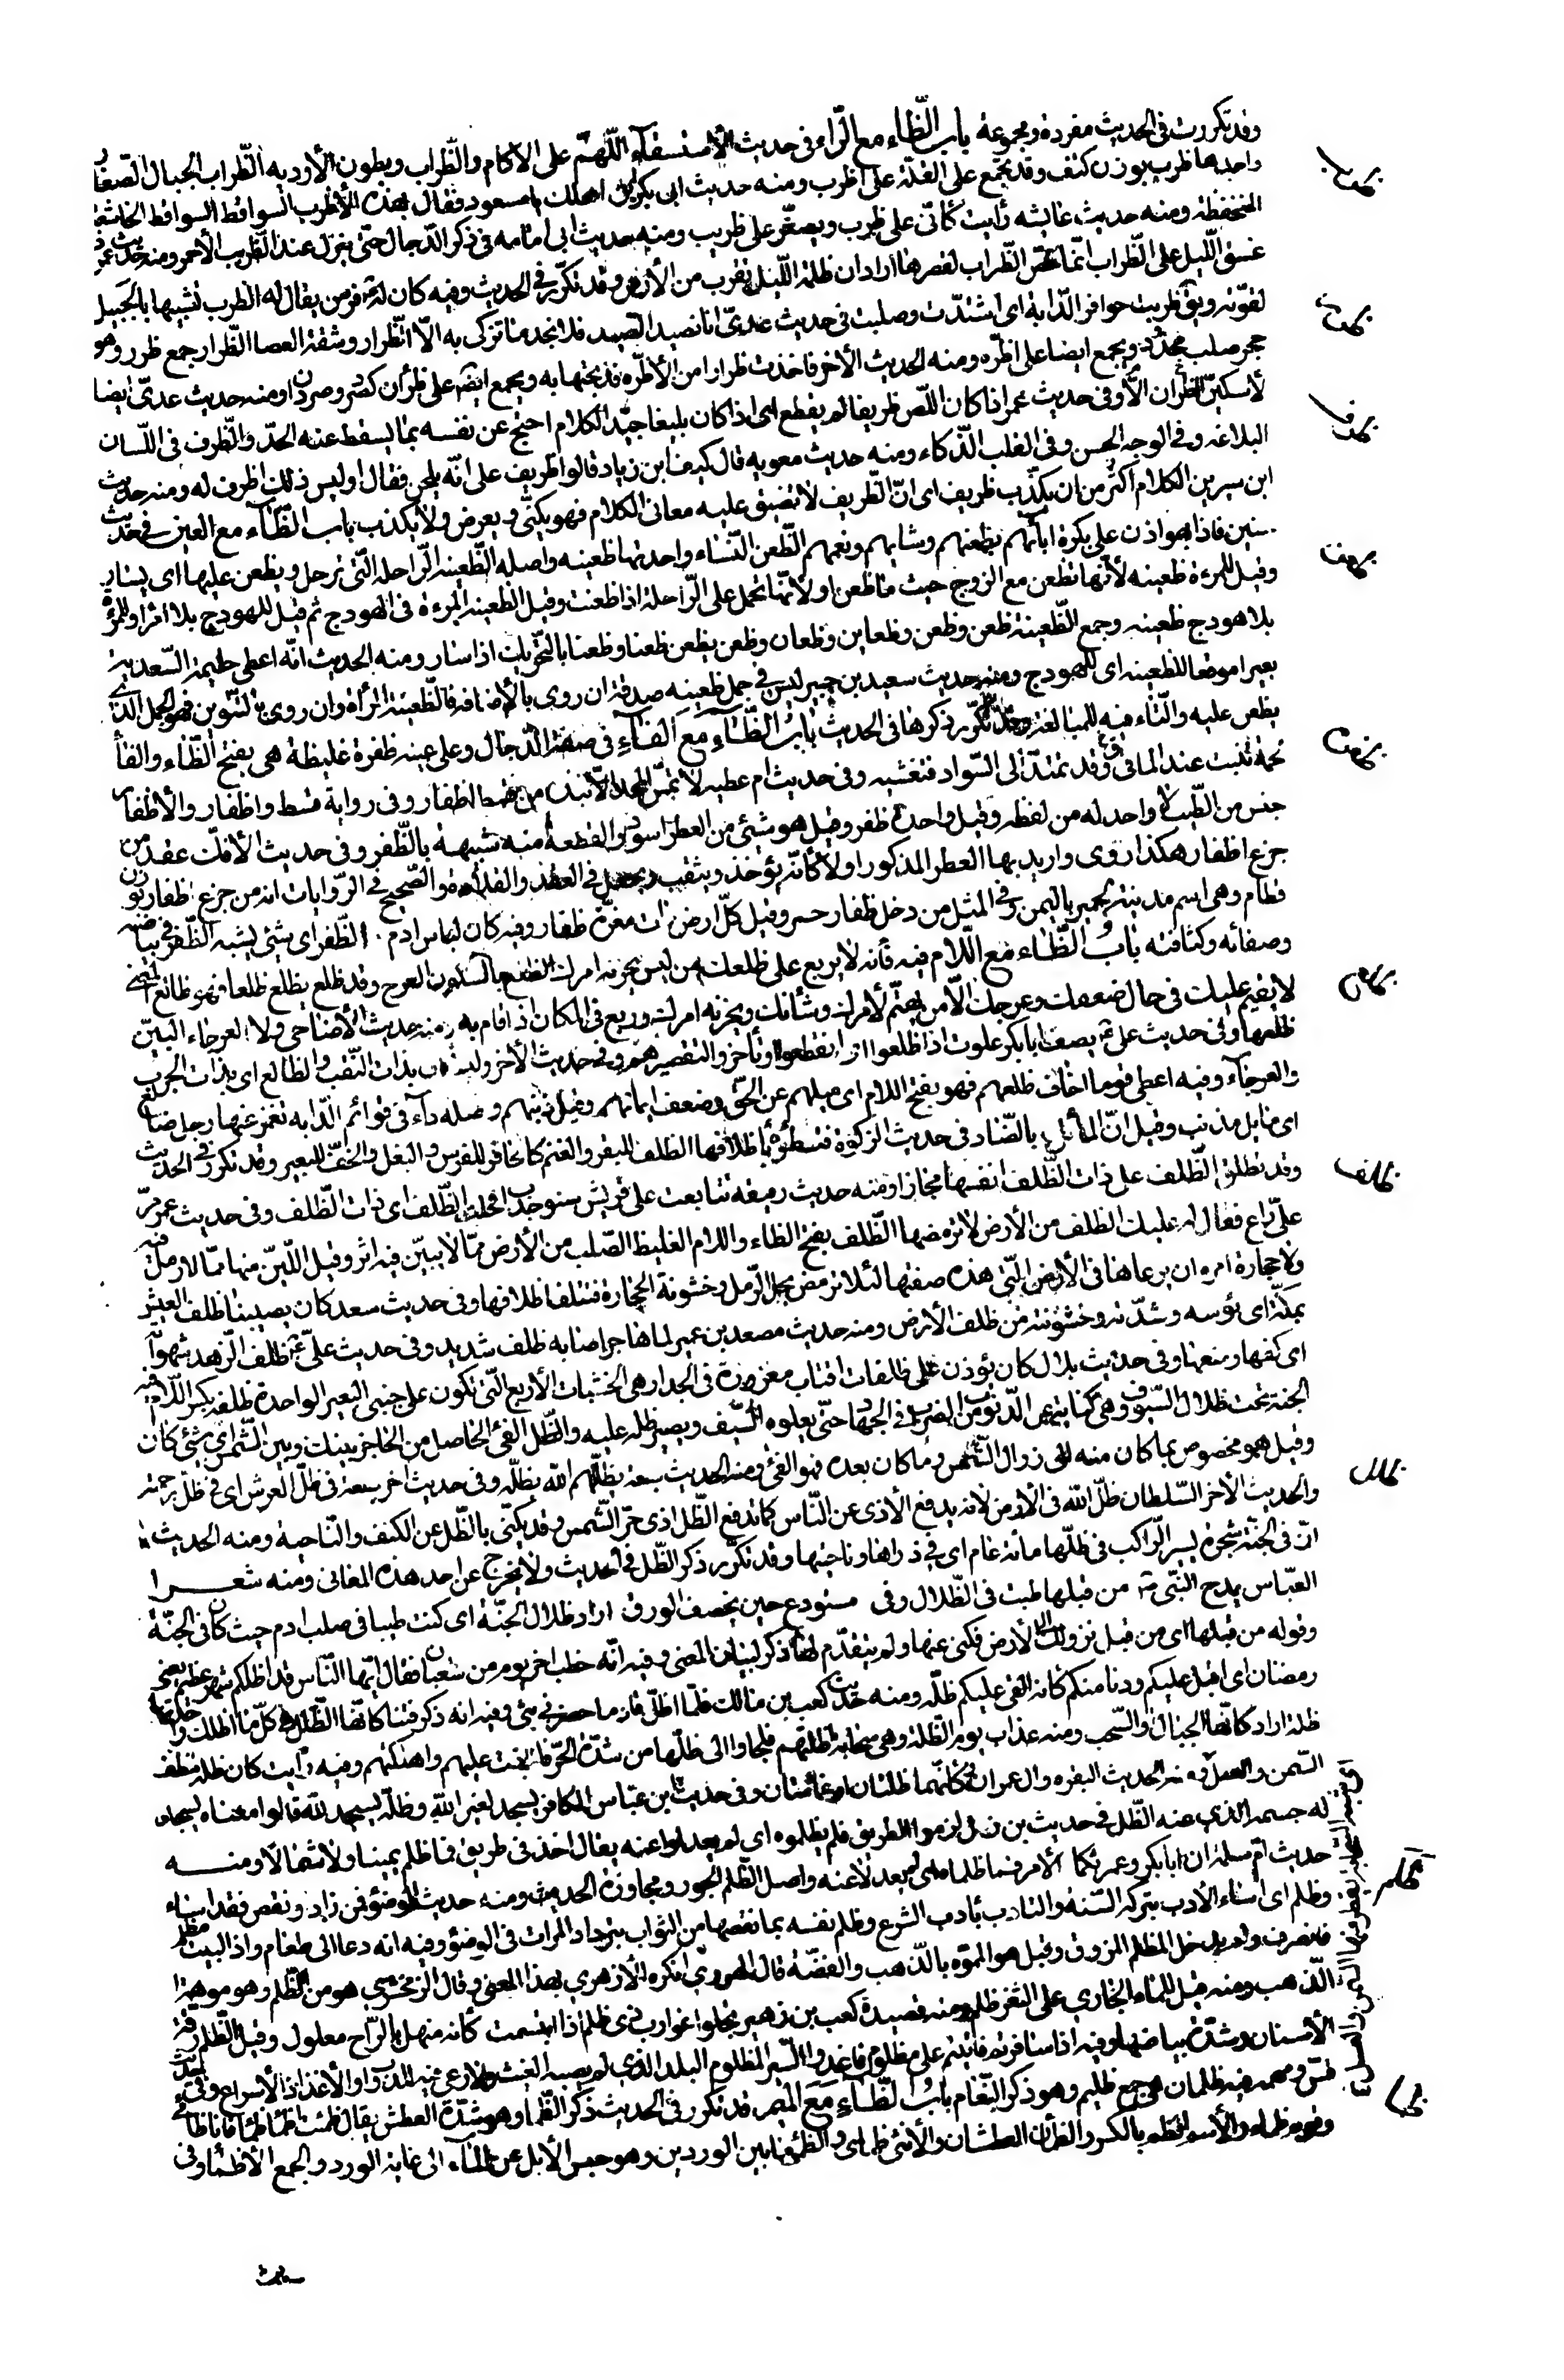 وقد تكررت فى الحديث مفردة ومجموعة باب الظّاء مع الرّاء فى حديث الأستسقآء اللّهمّ على الاكام والظّراب وبطون الأرديه الظّراب الجبال الصّغار
واحدها ظرب بوزن كتف وقد يجمع على القلة على اظرب ومنه حديث ابى بكر اين اهلك يا مسعود فقال بهذه الأظرب السواقط السواقط الخاشعة
المنخفظة ومنه حديث عائشه رأيت كأنّى على ظرب ويصغّر على ظريب ومنه حديث ابى امامه فى ذكر الدّجال حتّى ينزل عند الظّريب الأحمر ومنه حديث عمر
غسق اللّيل على الظّراب انّما خصّ الظّراب لقصرها اراد ان ظلمة اللّيل تقرب من الأرض وقد تكرّر فى الحديث وفيه كان له فرس يقال له الظرب تشبيها بالجبيل
لقوّته ويق ظربت حوافر الدّابة اى اشتدّت وصلبت فى حديث عدىّ انا نصيد الصيد فلا نجد ما نزكى به الّا الظّرار وشقة العصا الظّرار جمع ظرر وهو
حجر صلب محدّد ويجمع ايضا على اظرّه ومنه الحديث الأخر فاخذت ظرارا من الأظرّه فذبحتها به ويجمع ايضا على ظرّان كصرد وصردان ومنه حديث عدىّ ايضا
لأسكّين الّا الظّران وفى حديث عمر اذا كان اللّص ظريفا لم يقطع اى اذا كان بليغا جيّد الكلام احتج عن نفسه بما يسقط عنه الحدّ والظّرف فى اللّسان
البلاغه وفى الوجه الحسن وفى القلب الذّكاء ومنه حديث معويه قال كيف ابن زياد قالوا ظريف على انّه يلحن فقال اوليس ذلك اظرف له ومنه حديث
ابن سيرين الكلام اكثر من ان يكذّب ظريف اى انّ الظّريف لا تضيق عليه معانى الكلام فهو يكنّى ويعرض ولا يكذب باب الظّآء مع العين فى حديث
حنين فاذا بهوازن على بكرة ابآئهم بظعنهم وشائهم ونعمهم الظّعن النّساء واحدتها ظعينه واصله الظّعينه الرّاحله الّتى ترحل ويظعن عليها اى يسار
وقيل للمرءة ظعينه لأنّها تظعن مع الزوج حيث ما ظعن او لأنّها تحمل على الرّاحلة اذا ظعنت وقيل الظعينه المرءة فى الهودج ثم قيل للهودج بلا امرأة وللمرءة
بلا هودج ظعينه وجمع الظّعينة ظعن وظعن وظعاين وظعان وظعن يظعن ظعنا وظعنا بالتحريك اذا سار ومنه الحديث انّه اعطى حليمة السّعديه
بعيرا موقعا للظعينه اى للهودج ومنه حديث سعيد بن جبير ليس فى جمل ظعينه صدقة ان روى بالأضافه فالظّعينة المرأة وان روى بالتنوين فهو الجمل الذى
يظعن عليه والتّاء فيه للمبالغة وقد تكرّر ذكرها فى الحديث بَابُ الظّآءِ مَعَ الفَآءِ فى صفة الدّجال وعلى عينه ظفرة غليظة هى بفتح الظّاء والفأ
لحمة تنبت عند الماقى وقد تمتدّ الى السّواد فتغشيه وفى حديث ام عطيه لا تمسّ المحدّ الّا نبذة من قسط اظفار وفى رواية قسط واظفار والأظفار
جنس من الطّيب لا واحد له من لفظه وقيل واحده ظفر وقيل هو شيئ من العطر اسود والقطعة منه شبيهة بالظّفر وفى حديث الأفك عقد من
جزع اظفار هكذا روى واريد بها العطر المذكور اولا كأنّه يؤخذ ويثقب ويجعل فى العقد والقلادة والصّحيح فى الرّوايات انه من جزع ظفار بوزن
قطام وهى اسم مدينة لحمير باليمن وفى المثل من دخل ظفار حمر وقيل كلّ ارض ذات مغرّة ظفار وفيه كان لباس ادم الظّفر اى شيئ يشبه الظّفر فى بياضه
وصفائه وكثافته بَابُ الظّاء مع اللّام فيه فأنه لا يربع على ظلعك من ليس يحزنه امرك الظلع بالسّكون العرج وقد ظلع يظلع ظلعا فهو ظالع المعنى
لا يقيم عليك فى حال ضعفك وعرجك الّا من يهتمّ لأمرك وشأنك ويحزنه امرك وربع فى المكان اذا قام به ومنه حديث الأضاحى ولا العرجاء البيّن
ظلعها وفى حديث علىّ يصف ابا بكر علوت اذ ظلعوا اى انقطعوا وتأخروا لتقصيرهم وفى حديث الأخر وليستأن بذات النّقب والظالع اى بذات الجرب
والعرجآء وفيه اعطى قوما اخاف ظلعهم فهو بفتح اللام اى ميلهم عن الحقّ وضعف ايمانهم وقيل ذنبهم واصله دآء فى قوائم الدّابه تغمز عنها رجل ضالع
اى مايل مذنب وقيل انّ المآئل بالضّاد فى حديث الزّكوة فتطؤه بأظلافها الظلف للبقر والغنم كالحافر للفرس والبغل والخفّ للبعير وقد تكرر فى الحديث
وقد تطلق الظّلف على ذات الظّلف انفسها مجازا ومنه حديث رقيقه تتابعت على قريش سنو جدب اقحلت الظّلف اى ذات الظّلف وفى حديث عمر مرّ
على راع فقال له عليك الظلف من الأرض لا ترمضها الظّلف بفتح الظاء واللام الغليظ الصّلب من الأرض ممّا لا يبيّن فيه اثر وقيل اللّيّن منها ممّا لا رمل فيه
ولا حجارة امره ان يرعاها فى الأرض الّتى هذه صفتها لئلا ترمض بحرّ الرّمل وخشونة الحجارة فتتلف اظلافها وفى حديث سعد كان يصيبنا ظلف العيش
بمكّة اى بؤسه وشدّته وخشونته من ظلف الأرض ومنه حديث مصعد بن عمير لما هاجر اصابه ظلف شديد وفى حديث علىّ ظلف الزّهد شهوآته
اى كفها ومنعها وفى حديث بلال كان يؤذن على ظلفات اقتاب مغرزة فى الجدار هى الخشبات الأربع الّتى تكون على جنبى البعير الواحدة ظلفة بكسر اللّام فيه
الجنة تحت ظلال السّيوف وهى كناية عن الدّنوّ من الضرب فى الجهاد حتّى يعلوه السّيف ويصير ظله عليه والظّل الفئ الحاصل من الحاجز بينك وبين الشّمس اىّ شئ كان
وقيل هو مخصوص بما كان منه الى زوال الشّمس وما كان بعده فهو الفئ ومنه الحديث سبعة يظلّهم الله بظلّه وفى حديث اخر سبعة فى ظلّ العرش اى فى ظلّ رحمته
والحديث الأخر السّلطان ظلّ الله فى الأرض لانه يدفع الأذى عن النّاس كما يدفع الظّل اذى حرّ الشّمس وقد يكنّى بالظّل عن الكنف والنّاحية ومنه الحديث
انّ فى الجنّة شجرة يسير الرّاكب فى ظلّها مأنة عام اى فى ذراها وناحيتها وقد تكرّر ذكر الظّل فى الحديث ولا يخرج عن احد هذه المعانى ومنه شعرا
العبّاس يمدح النّبى من قبلها طبت فى الظّلال وفى مستودع حين يخصف الورق اراد ظلال الجنّة اى كنت طيبا فى صلب ادم حيث كان فى الجنّة
وقوله من قبلها اى من قبل نزولك الى الأرض فكنى عنها ولم يتقدّم لها ذكر لبيان المعنى وفيه انّه خطب اخر يوم من شعبان فقال ايّها النّاس قد اظلكم شهر عظيم يعنى
رمضان اى اقبل عليكم ودنا منكم كأنه القى عليكم ظلّه ومنه حديث كعب بن مالك فلمّا اظلّ قادما حضرنى بثى وفيه انه ذكر فتنا كانّها الظّلل هى كلّ ما اظلك واحدتها
ظلة اراد كانّها الجبال والسّحب ومنه عذاب يوم الظّلة وهى سحابة اظلتهم فلجاوا الى ظلّها من شدّة الحرّ فاطبقت عليهم واهلكتهم وفيه رأيت كان ظلة تنطف
السّمن والعسل ومنه الحديث البقره وال عمران كأنّهما ظلتان او غمامتان وفى حديث ابن عبّاس الكافر يسجد لغير الله وظلّه يسجد لله قالوا معناه يسجد
له جسمه الذى عنه الظّل فى حديث بن زمل لزموا الطّريق فلم يظلموه اى لم يعدلوا عنه يقال اخذ فى طريق فما ظلم يمينا ولا شمالا ومنه
حديث امّ سلمة ان ابا بكر وعمر ثكما الأمر فما ظلماه اى لم يعدلا عنه واصل الظّلم الجور ومجاوزة الحد ومنه حديث الوضؤ فمن زاد ونقص فقد اساء
وظلم اى اساء الأدب بتركه السّنة والتادب بأدب الشرع وظلم نفسه بما نقصها من الثواب بترداد المرات فى الوضؤ وفيه انه دعا الى طعام واذا البيت مظلّم
فانصرف ولم يدخل المظلم المزوق وقيل هو المموّه بالذّهب والفضّة قال الهروىّ انكره الأزهرى بهذا المعنى وقال الزمخشرى هو من الظّلم وهو موهة
الذّهب ومنه قيل للماء الجارى على الثغر ظلم ومنه قصيدة كعب بن زهير تجلوا غوارب ذى ظلم اذا ابتسمت كأنه منهل بالرّاح معلول وقيل الظّلم رقة
الأسنان وشدّة بياضها وفيه اذا سافرتم فأتيتم على مظلوم فاغذوا السّير المظلوم البلد الذى لم يصبه الغيث ولا رعى فيه للدّواب والأغذاذ الأسراع وفى حديث
قسّ ومهمه فيه ظلمان هى جمع ظليم وهو ذكر النّعام بَابُ الظّاءِ مَعَ الميمِ قد تكرر فى الحديث ذكر الظّماء وهو شدّة العطش يقال ظمئت اظمأ ظمأ فانا ظامئ
وقوم ظماء والأسم الظمء بالكسر والظمأن العطشان والأنثى ظمأى والظمء ما بين الوردين وهو حبس الأبل عن المآء الى غاية الورد والجمع الأظمأ وفى
ظرب
ظرر
ظرف
ظعن
ظفر
ظلع
ظلف
ظلل
ظلم
ظما
حديث